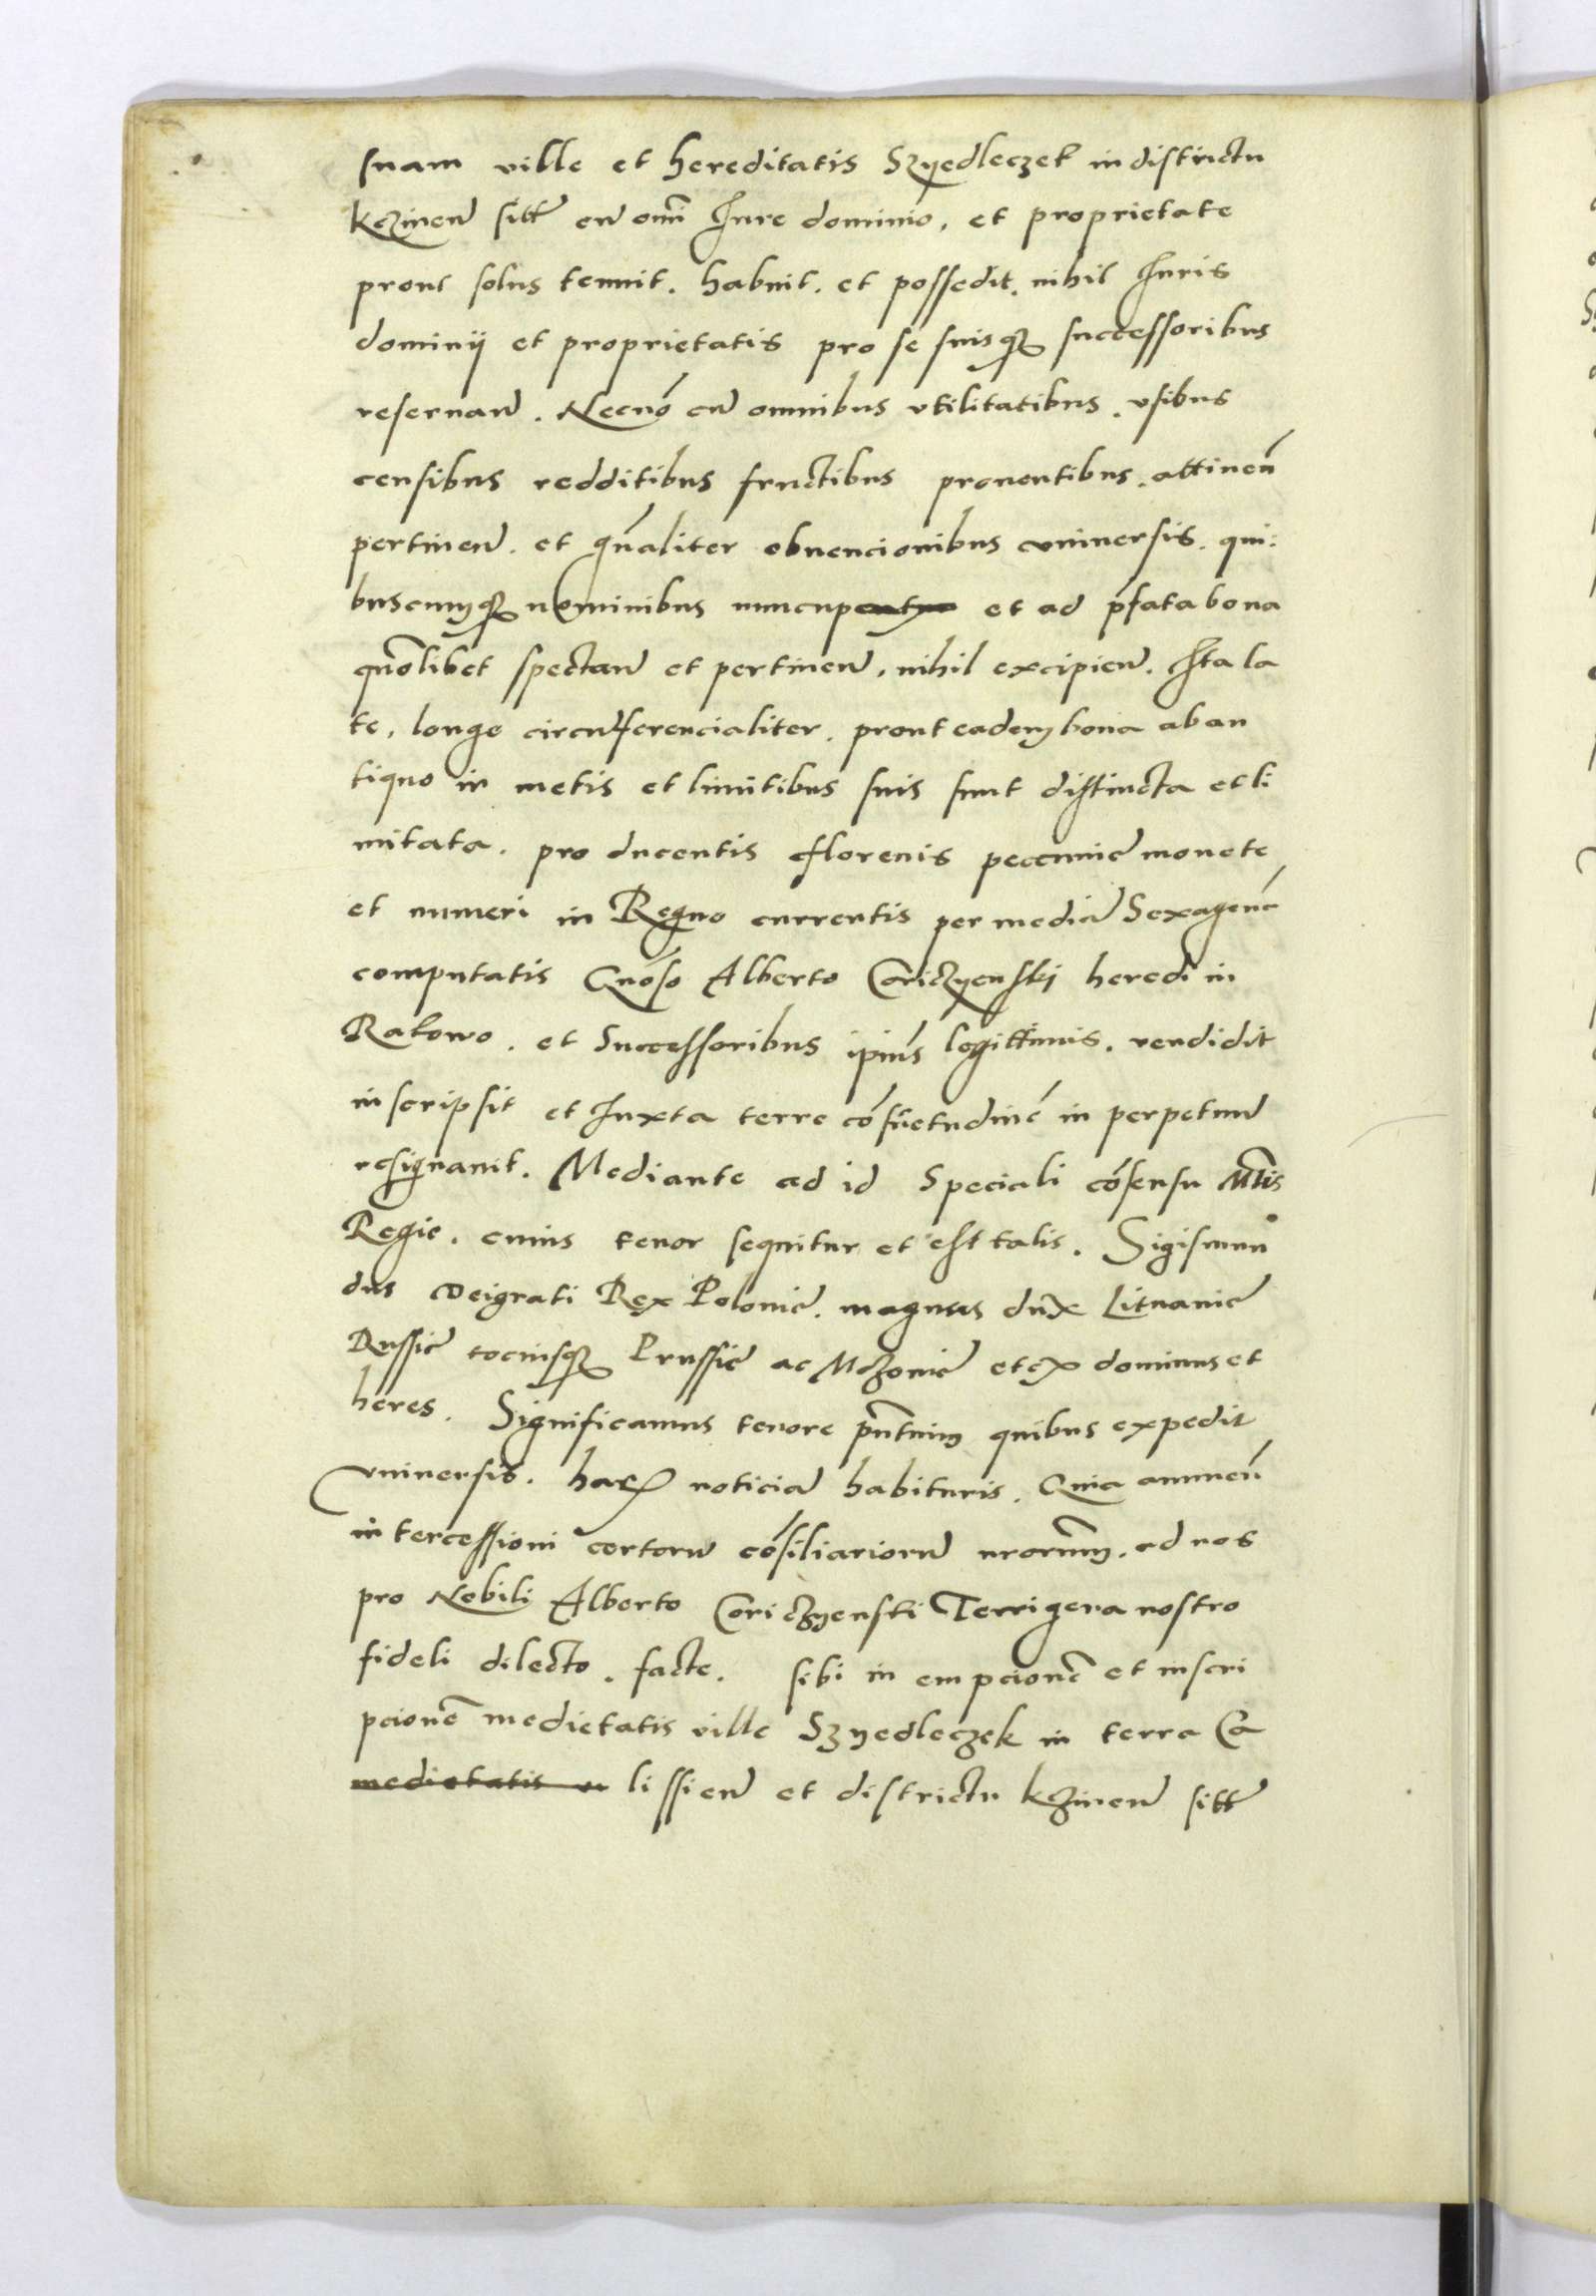 suam ville et hereditatis Szyedleczek in districtu
kczinen̄ sitt̄ cū om̄i Iure dominio, et proprietate
prout solus tenuit. habuit. et possedit. nihil Iuris
dominij et proprietatis pro se suisqꝫ successoribus
reseruan̄. Necnō cū omnibus vtilitatibus. vsibus
censibus redditibus fructibus prouentibus. attinen̄
pertinen̄. et gn̄aliter obuencionibus vniuersis. qui:
buscumqꝫ nominibus nuncup et ad p̄fata bona
quōlibet spectan̄ et pertinen̄, nihil excipien̄. Ita la
te, longe circūferencialiter. prout eadem bona ab an
tiquo in metis et limitibus suis sunt distincta et li
mitata. pro ducentis florenis peccunie monete
et numeri in Regno currentis per mediā Sexagenā
computatis Gn̄oso Alberto Coriczyenskj heredi in
Rakowo. et Successoribus ipius legittimis. vendidit
inscripsit et Iuxta terre cōsuetudinē in perpetuū
resignauit. Mediante ad id Speciali cōsensu Mt̄is
Regie. cuius tenor sequitur et est talis. Sigismun
dus Dei grati Rex Polonie. magnus dux Lituanie
Russie tociusqꝫ Prussie ac Mczouie etcꝫ dominus et
heres. Significamus tenore pn̄tuum quibus expedit
vniuersis. haꝝ noticiā habituris. Quia annuen̄
intercessioni certorū cōsiliariorū nrorum. ad nos
pro Nobili Alberto Coriczyenski Terrigena nostro
fideli dilecto. facte. sibi in empcionē et inscri
pcionē medietatis ville Szyedleczek in terra Ca
medietatis lissien̄ et districtu kczinen̄ sitt̄